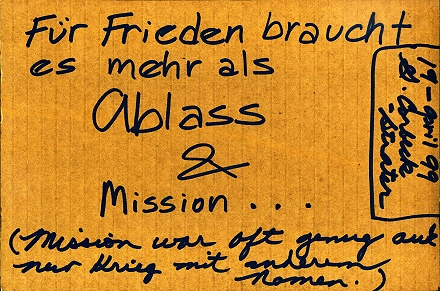 Für Frieden braucht
es mehr als
Ablass
&
Mission . . .
(Mission war oft genug auch
nur Krieg mit anderem
Namen.)
19 - April 99